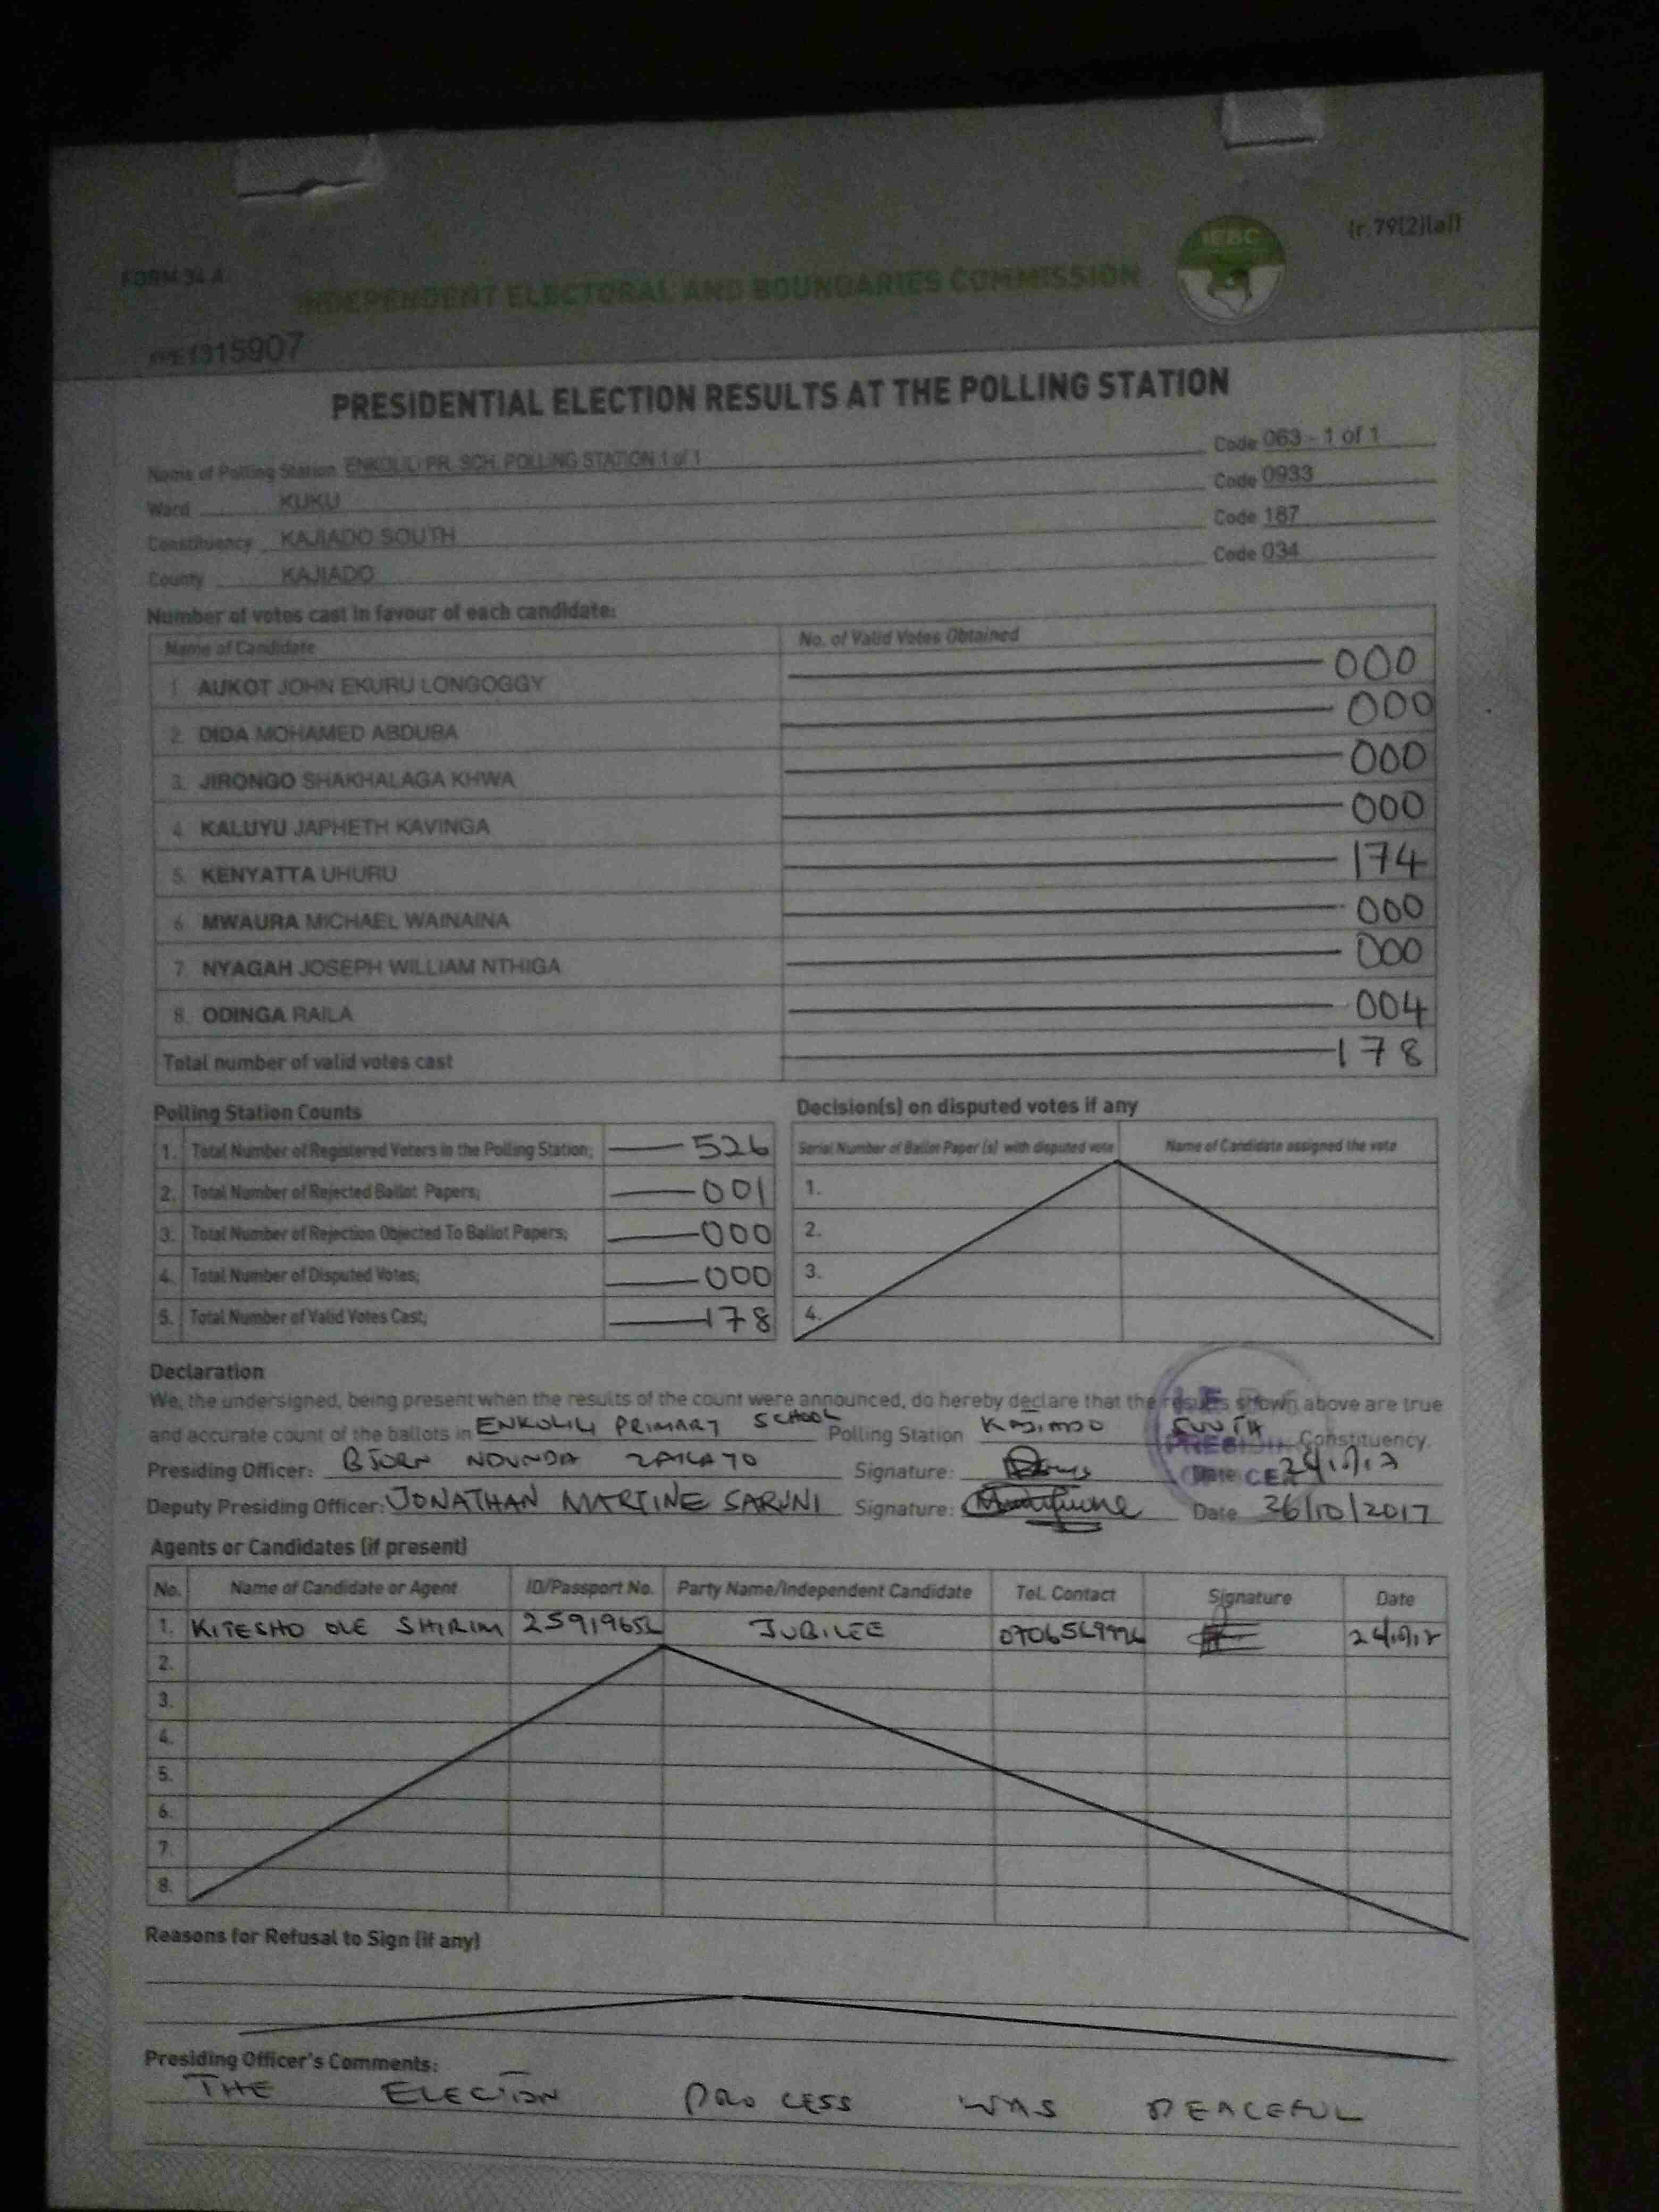 (r.79(2)(a))
FORM 34 A
IEBC
INDEPENDENT ELECTORAL AND BOUNDARIES COMMISSION
1315907
PRESIDENTIAL ELECTION RESULTS AT THE POLLING STATION
Name of Polling Station ENKOLILI PR. SCH. POLLING STATION 1 of 1 Code 063 - 1 of 1
Ward KUKU Code 0933
Constituency KAJIADO SOUTH Code 187
County KAJIADO Code 034
Number of votes cast in favour of each candidate:
Name of Candidate No. of Valid Votes Obtained
1. AUKOT JOHN EKURU LONGOGGY 000
2. DIDA MOHAMED ABDUBA 000
3. JIRONGO SHAKHALAGA KHWA 000
4. KALUYU JAPHETH KAVINGA 000
5. KENYATTA UHURU 174
6. MWAURA MICHAEL WAINAINA 000
7. NYAGAH JOSEPH WILLIAM NTHIGA 000
8. ODINGA RAILA 004
Total number of valid votes cast 178
Polling Station Counts
1. Total Number of Registered Voters in the Polling Station; 526
2. Total Number of Rejected Ballot Papers; 001
3. Total Number of Rejection Objected To Ballot Papers; 000
4. Total Number of Disputed Votes; 000
5. Total Number of Valid Votes Cast; 178
Decision(s) on disputed votes if any
Serial Number of Ballot Paper (s) with disputed vote Name of Candidate assigned the vote
1.
2.
3.
4.
Declaration
We, the undersigned, being present when the results of the count were announced, do hereby declare that the results shown above are true
and accurate count of the ballots in ENKOLILI PRIMARY SCHOOL Polling Station KAJIADO SOUTH Constituency.
Presiding Officer: BJORN Signature: Date
Deputy Presiding Officer: JONATHAN MARTINE SARUNI Signature: Date 26/10/2017
Agents or Candidates (if present)
No. Name of Candidate or Agent ID/Passport No. Party Name/Independent Candidate Tel. Contact Signature Date
1. KITESHO OLE SHIRIM JUBILEE
2.
3.
4.
5.
6.
7.
8.
Reasons for Refusal to Sign (if any)
Presiding Officer's Comments:
THE ELECTION PROCESS WAS PEACEFUL